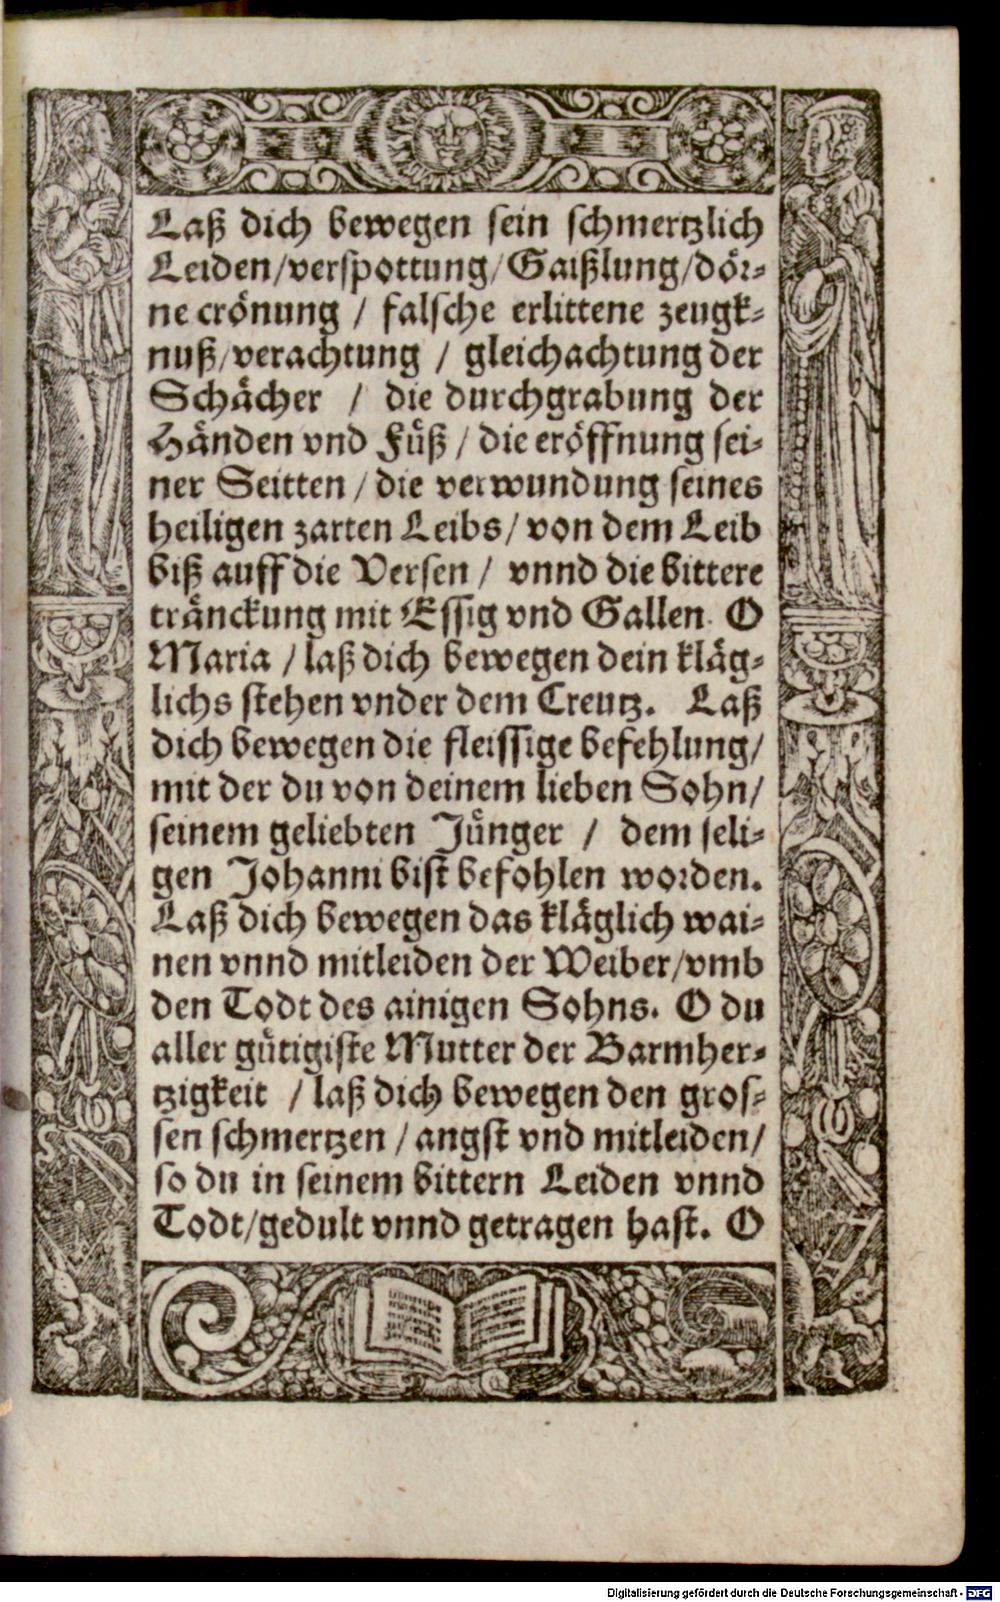 Laß dich bewegen sein schmertzlich
Leiden/verspottung/Gaißlung/dör-
ne crönung / falsche erlittene zeugk-
nuß/verachtung / gleichachtung der
Schächer / die durchgrabung der
Händen vnd Füß / die eröffnung sei-
ner Seitten / die verwundung seines
heiligen zarten Leibs / von dem Leib
biß auff die Versen / vnnd die bittere
tränckung mit Essig vnd Gallen. O
Maria / laß dich bewegen dein kläg-
lichs stehen vnder dem Creutz. Laß
dich bewegen die fleissige befehlung/
mit der du von deinem lieben Sohn/
seinem geliebten Jünger / dem seli-
gen Johanni bist befohlen worden.
Laß dich bewegen das kläglich wai-
nen vnnd mitleiden der Weiber/vmb
den Todt des ainigen Sohns. O du
aller gütigiste Mutter der Barmher-
tzigkeit / laß dich bewegen den gros-
sen schmertzen / angst vnd mitleiden/
so du in seinem bittern Leiden vnnd
Todt/gedult vnnd getragen hast. O
Digitalisierung gefördert durch die Deutsche Forschungsgemeinschaft - DFG